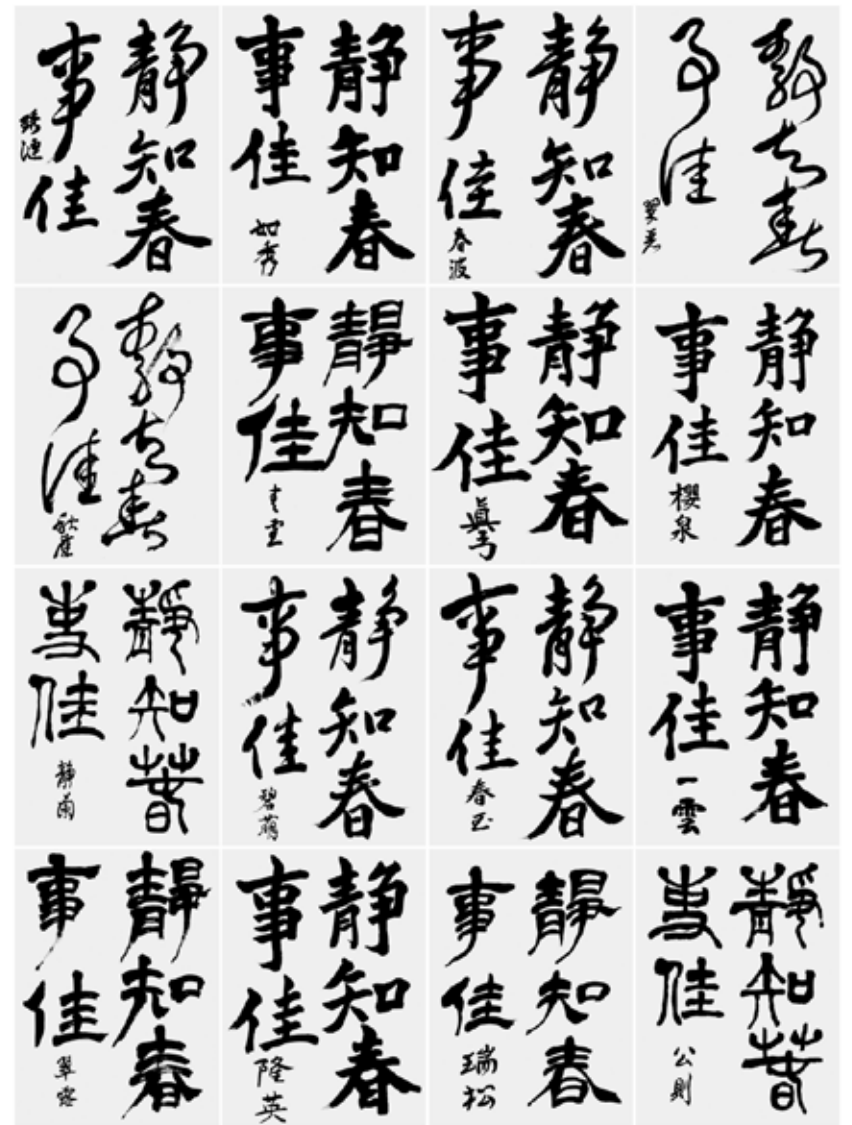 静知春
事佳
琇漣
静知春
事佳
如秀
静知春
事佳
春波
静知春
事佳
静知春
事佳
静知春
事佳
静知春
事佳
真弓
静知春
事佳
櫻泉
静知春
事佳
静蘭
静知春
事佳
碧萌
静知春
事佳
春玉
静知春
事佳
一雲
静知春
事佳
翠窓
静知春
事佳
隆英
静知春
事佳
瑞松
静知春
事佳
公則